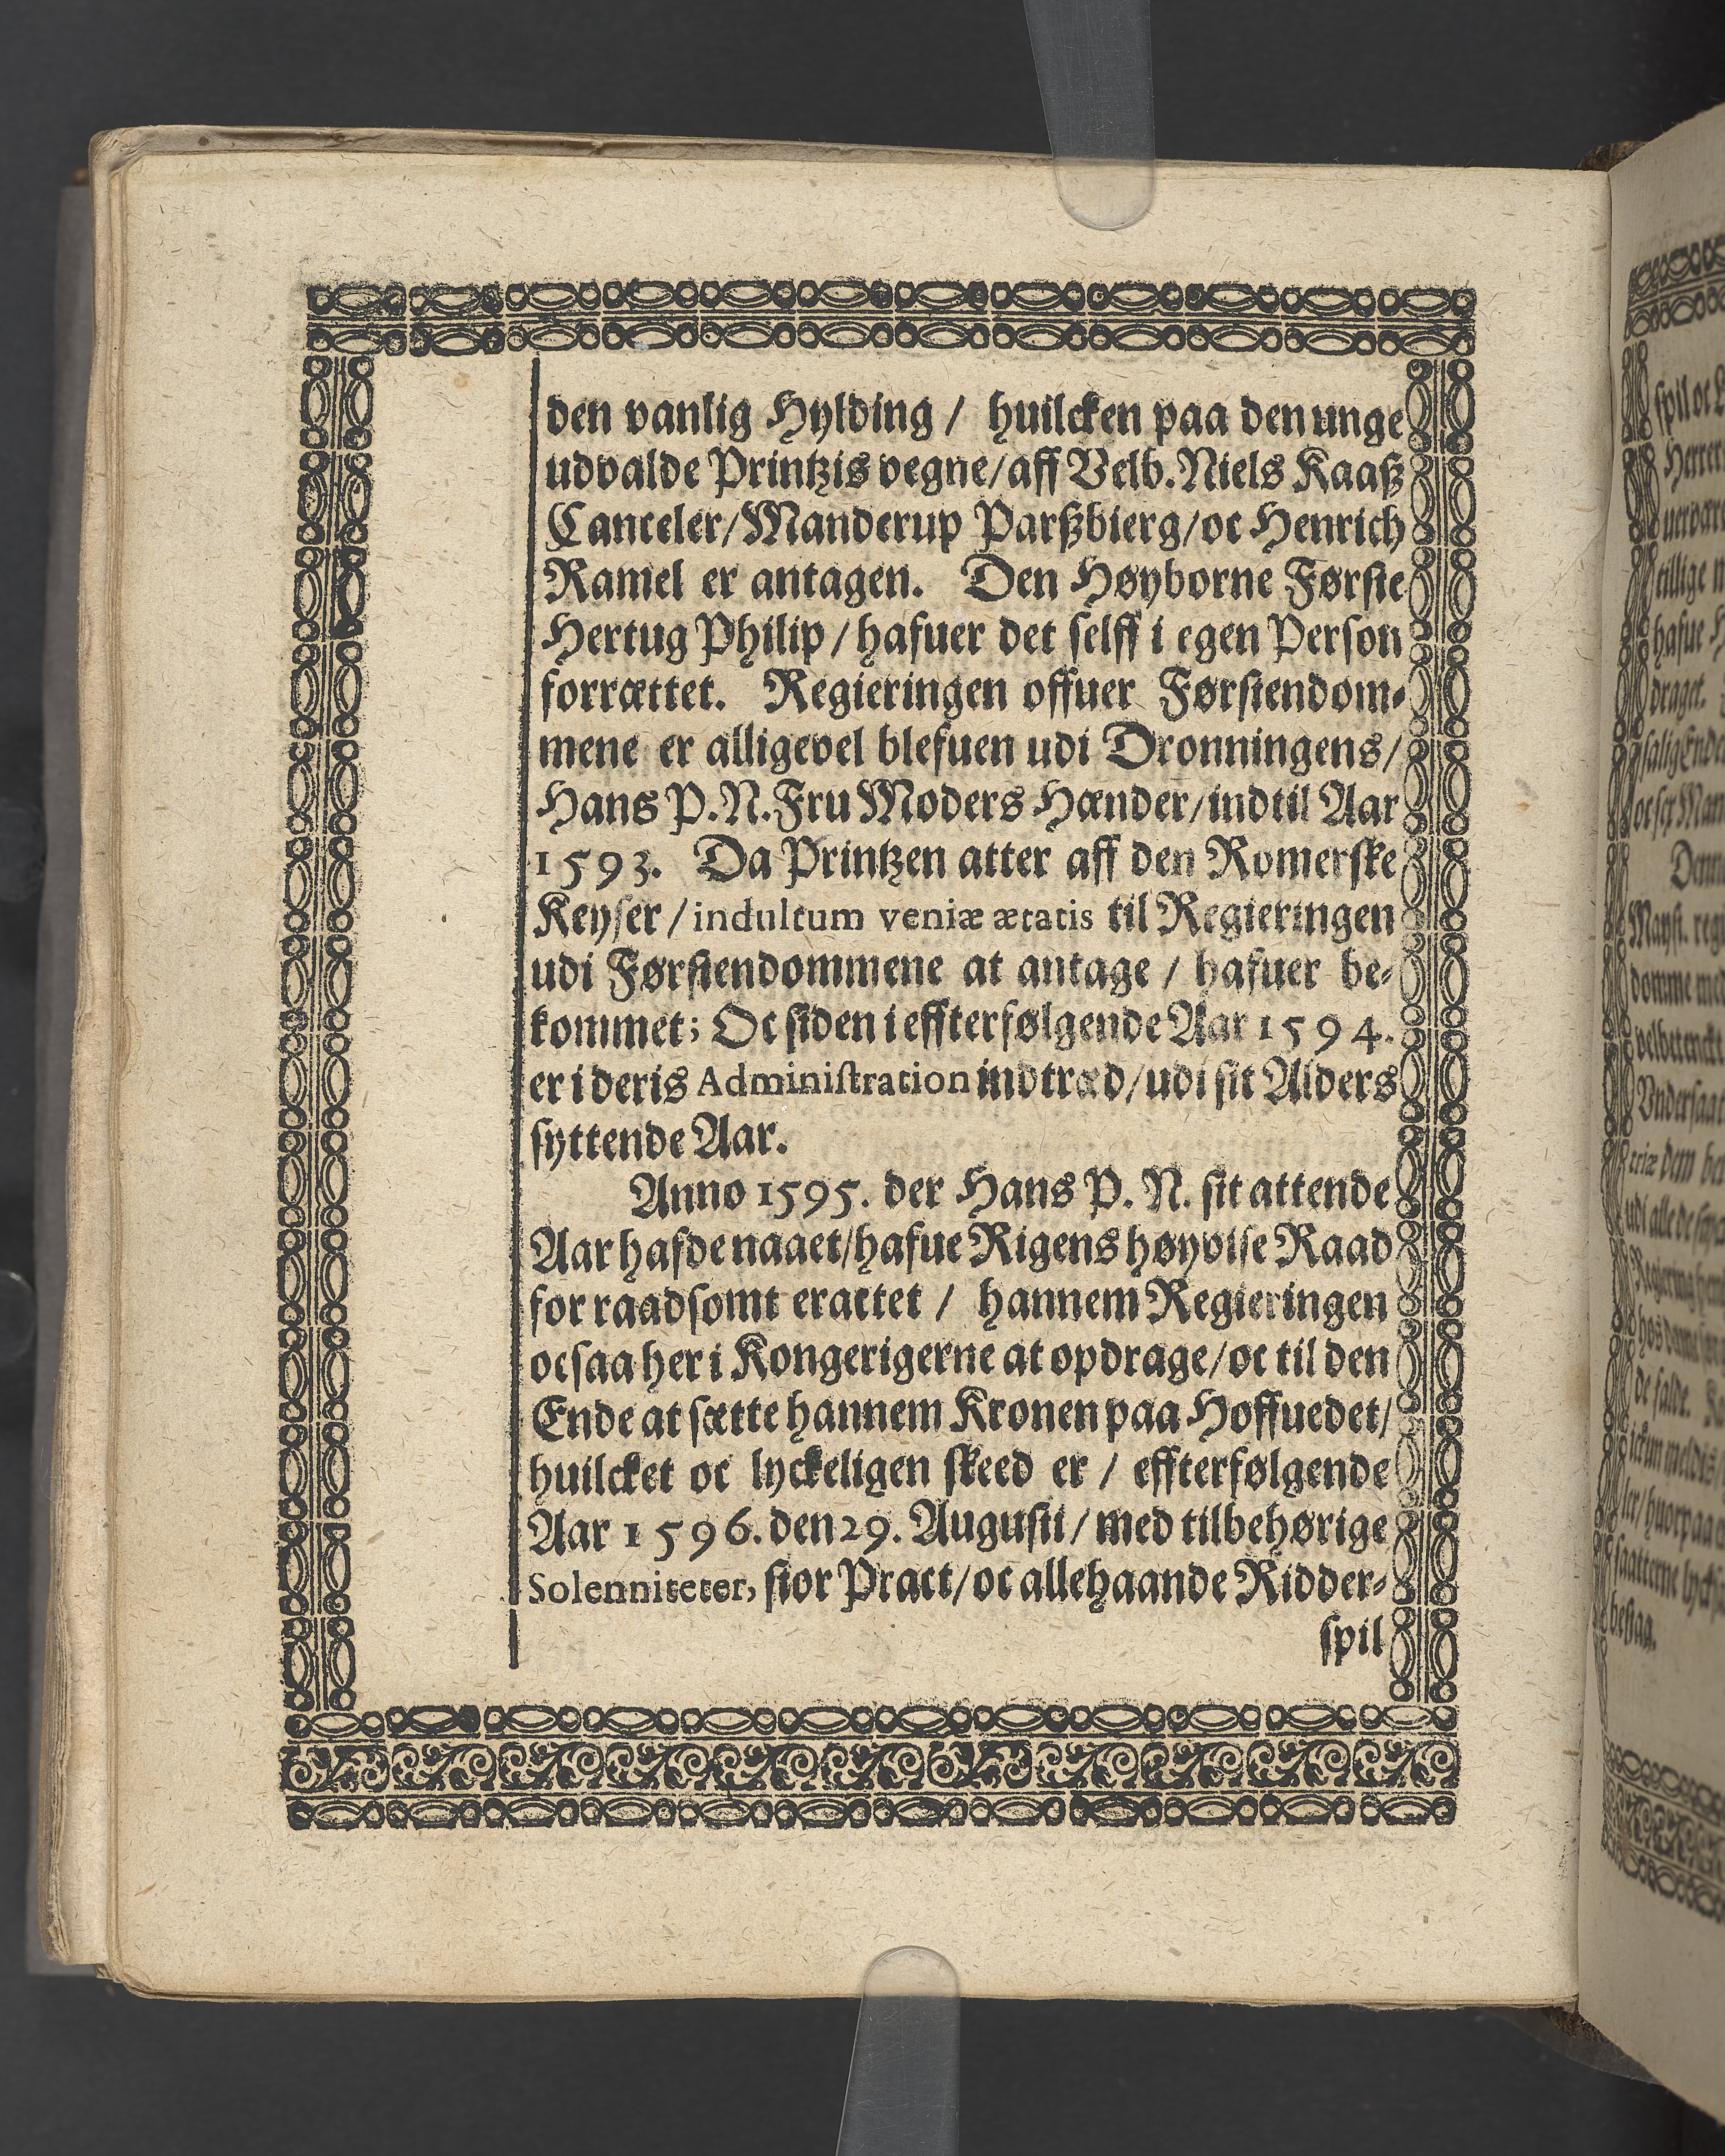 den vanlig Hylding / huilcken paa den unge
udvalde Printzis vegne/aff Velb. Niels Kaaß
Canceler/Manderup Parßbierg/oc Henrich
Ramel er antagen. Den Høyborne Førſte
Hertug Philip / hafuer det ſelff i egen Perſon
forrættet. Regieringen offuer Førſtendom⸗
mene er alligevel blefuen udi Dronningens/
Hans P. N. Fru Moders Hænder/indtil Aar
1593. Da Printzen atter aff den Romerſke
Keyſer / indultum veniæ ætatis til Regieringen
udi Førſtendommene at antage / hafuer be⸗
kommet; Oc ſiden i effterfølgende Aar 1594.
er i deris Adminiſtration indtræd/udi ſit Alders
ſyttende Aar.
Anno 1595. der Hans P. N. ſit attende
Aar hafde naaet/hafue Rigens høyviſe Raad
for raadſomt eractet / hannem Regieringen
ocſaa her i Kongerigerne at opdrage/oc til den
Ende at ſætte hannem Kronen paa Hoffuedet/
huilcket oc lyckeligen ſkeed er / effterfølgende
Aar 1596. den 29. Auguſti / med tilbehørige
Solenniteter, ſtor Pract/oc allehaande Ridder⸗
ſpil